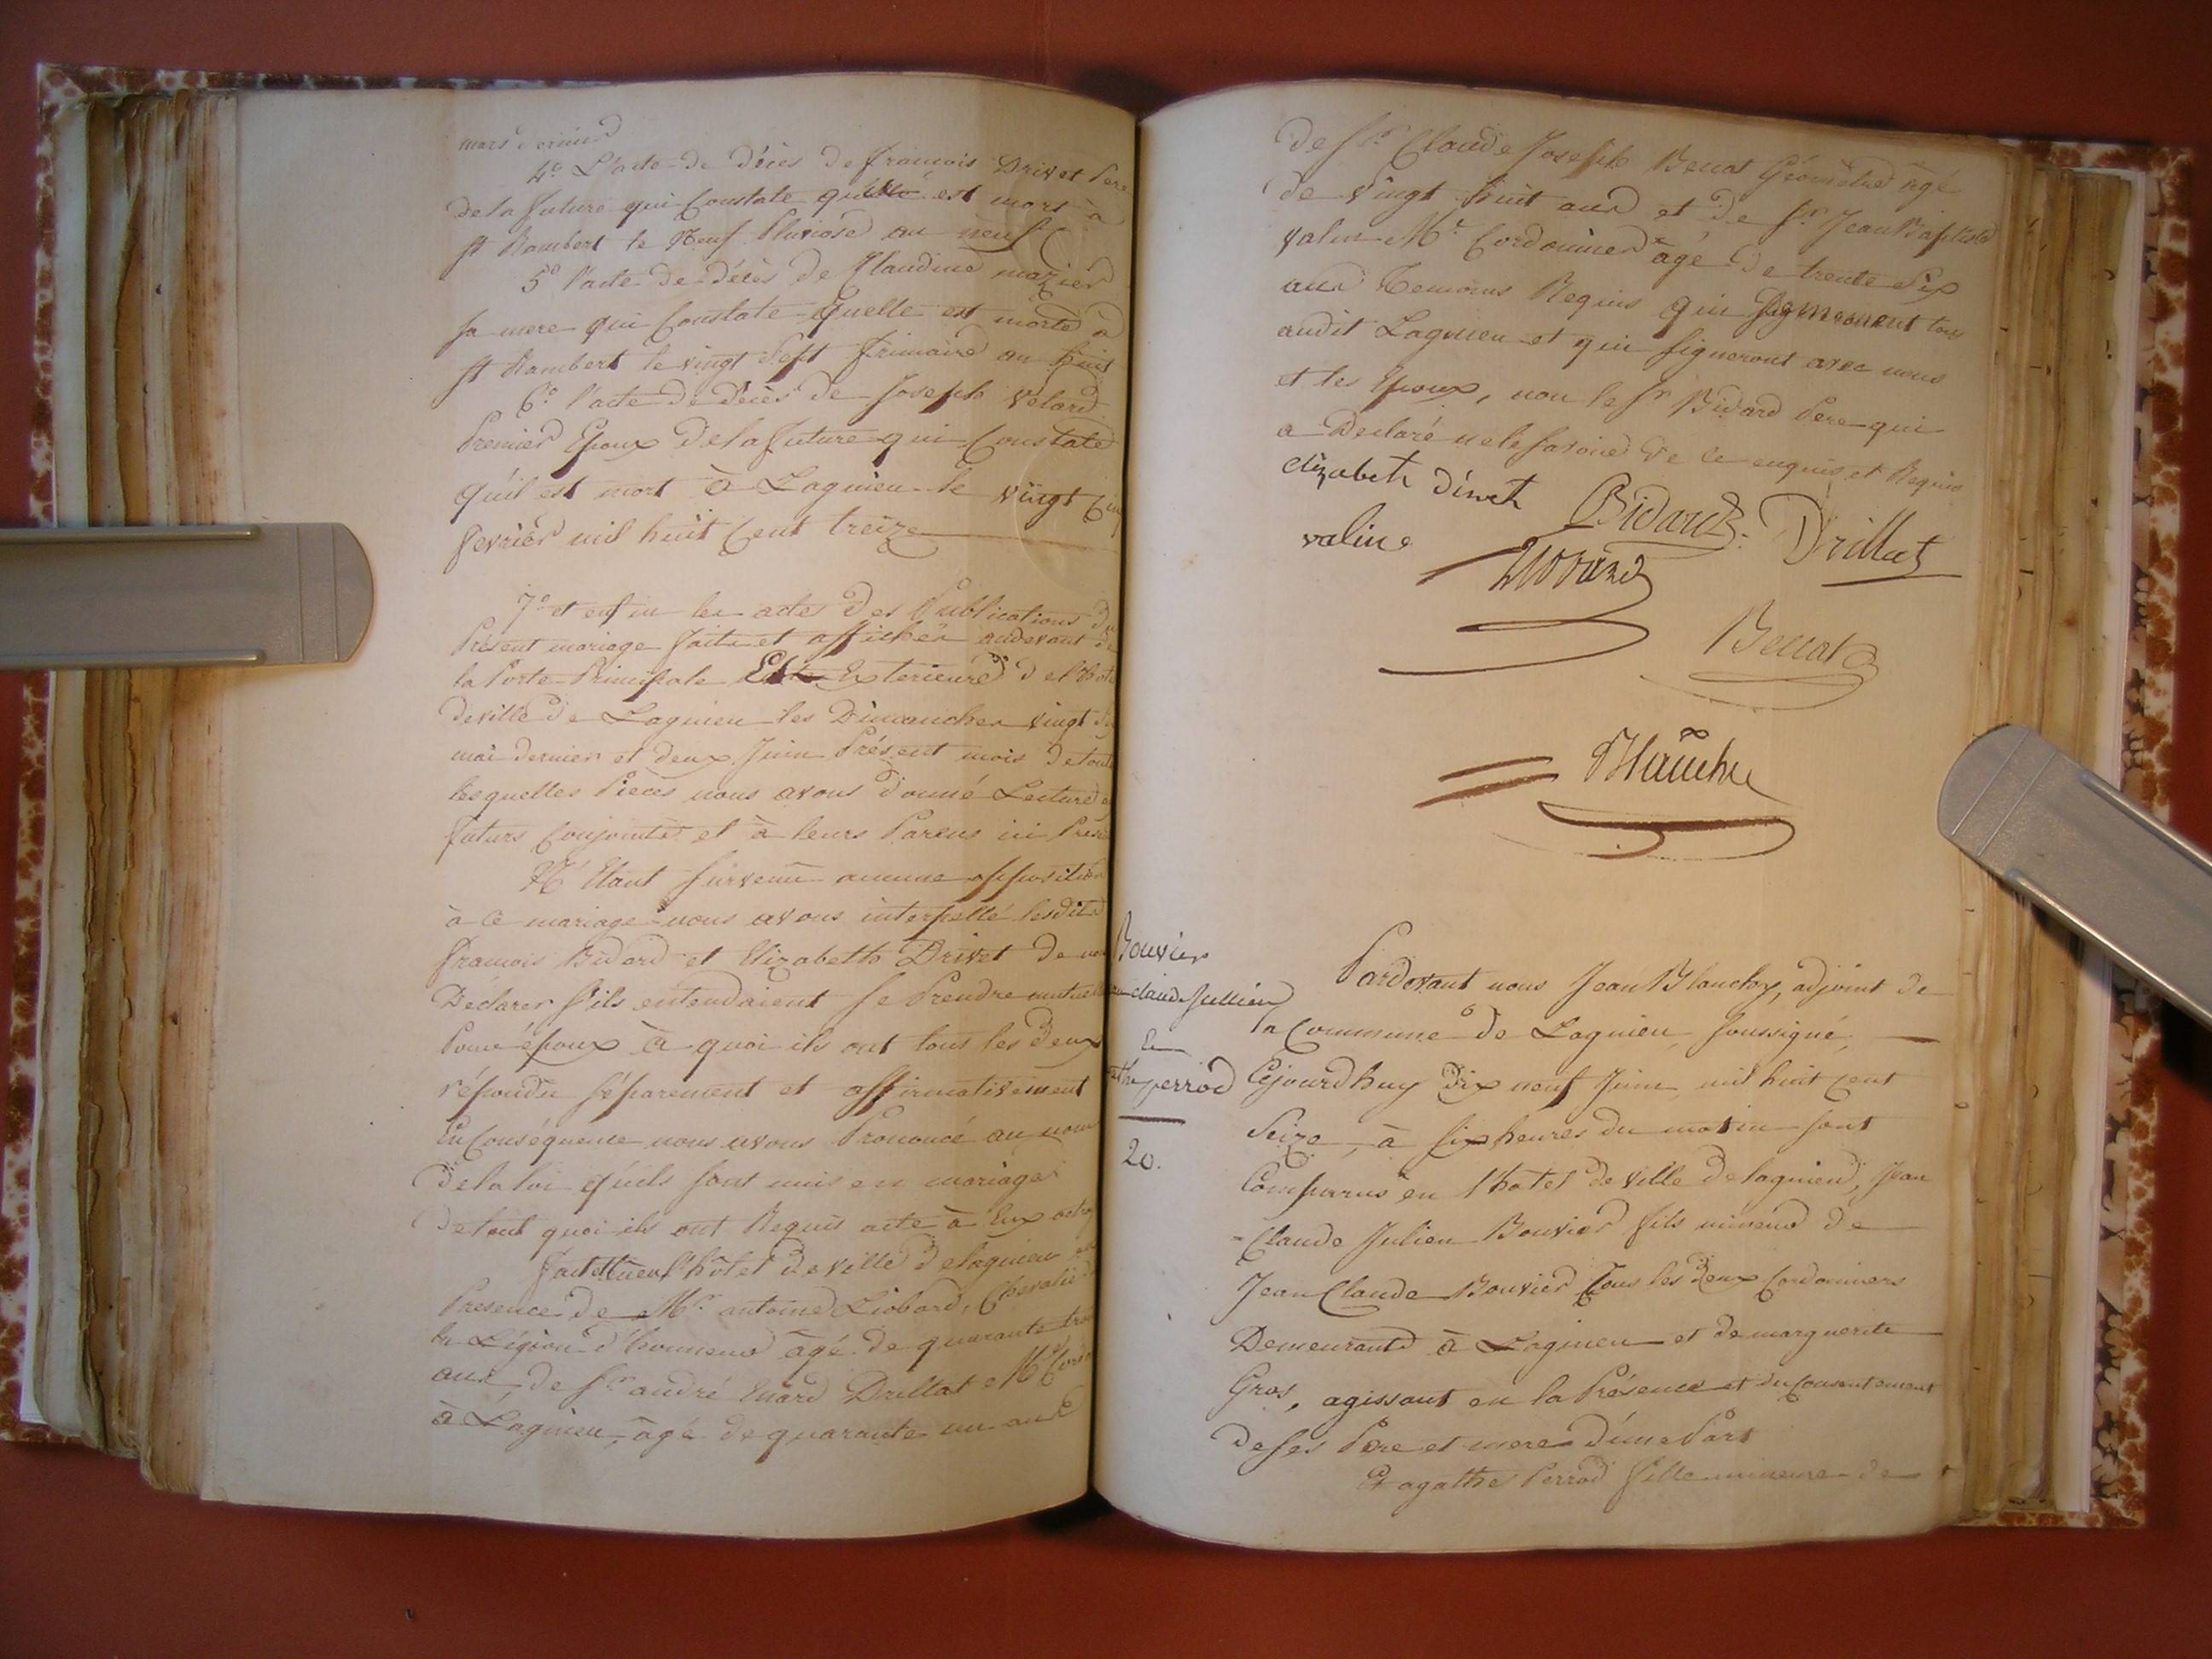 mars dernier
4.° L'acte de décès de françois Drivet Pere
de la future qui Constate qu'il est mort à
st Rambert le Neuf Pluviôse an neuf
5° l'acte de décès de Claudine mazier
sa mere qui Constate quelle est morte à
st Rambert le vingt Sept frimaire an huit
6.° l'acte de décès de Joseph Velard
Premier Epoux de la future qui Constate
qu'il est mort à Lagnieu le vingt Cinq
fevrier mil huit Cent treize
7° et enfin les actes des Publications du
Présent mariage faite et affichée audevant de
la Porte Principale Exterieure de l'hotel
de ville de Lagnieu les Dimanches vingt six
mai dernier et deux Juin Présent mois de toute
lesquelles Pièces nous avons donné Lecture
futurs Conjoints et à leurs Parens ici
N'Etant survenu aucune opposition
à ce mariage nous avons interpellé lesdits
françois Bidard et Elizabeth Drivet de nous
Déclarer s'ils entendaient se Prendre
Pour époux à quoi ils ont tous les Deux
répondu séparement et affirmativement
En Conséquence nous avons Prononcé au nom
de la loi qu'ils sont unis en mariage
de tout quoi ils ont Requis acte à Eux
fait et l'hôtel de ville de lagnieu en
Presence de Mr. antoine Liobard, Chevalier de
la Légion d'honneur âgé de quarante trois
ans, de sr. andré Drillat Mt
à Lagnieu, âgé de quarante un ans
de sr. Claude Joseph Benat Géomètre âgé
de vingt huit ans et de sr. Jean Baptiste
valin Mt. Cordonnier âgé de trente Six
ans Temoins Requis qui tous
audit Lagnieu et qui signeront avec nous
et les Epoux, non le sr Bidard Pere qui
a Declaré ne le savoir de ce enquis et Requis
elizabeth drivet Bidard Drillat
valine
Benat
Blanchy
Bouvier
jean claude Jullien
&
agathe perrod
20.
Pardevant nous Jean Blanchy, adjoint de
la Commune de Lagnieu, soussigné,
Cejourdhuy Dix neuf Juin mil huit cent
Seize, à six heures du matin sont
Comparus en l'hôtel de ville de lagnieu, Jean
-Claude Julien Bouvier fils mineur de
Jean Claude Bouvier Tous les Deux Cordonniers
Demeurants à Lagnieu et de marguerite
Gros, agissant en la Présence et du Consentement
de ses Pere et mere d'une Part
Et agathe Perrod fille mineure de